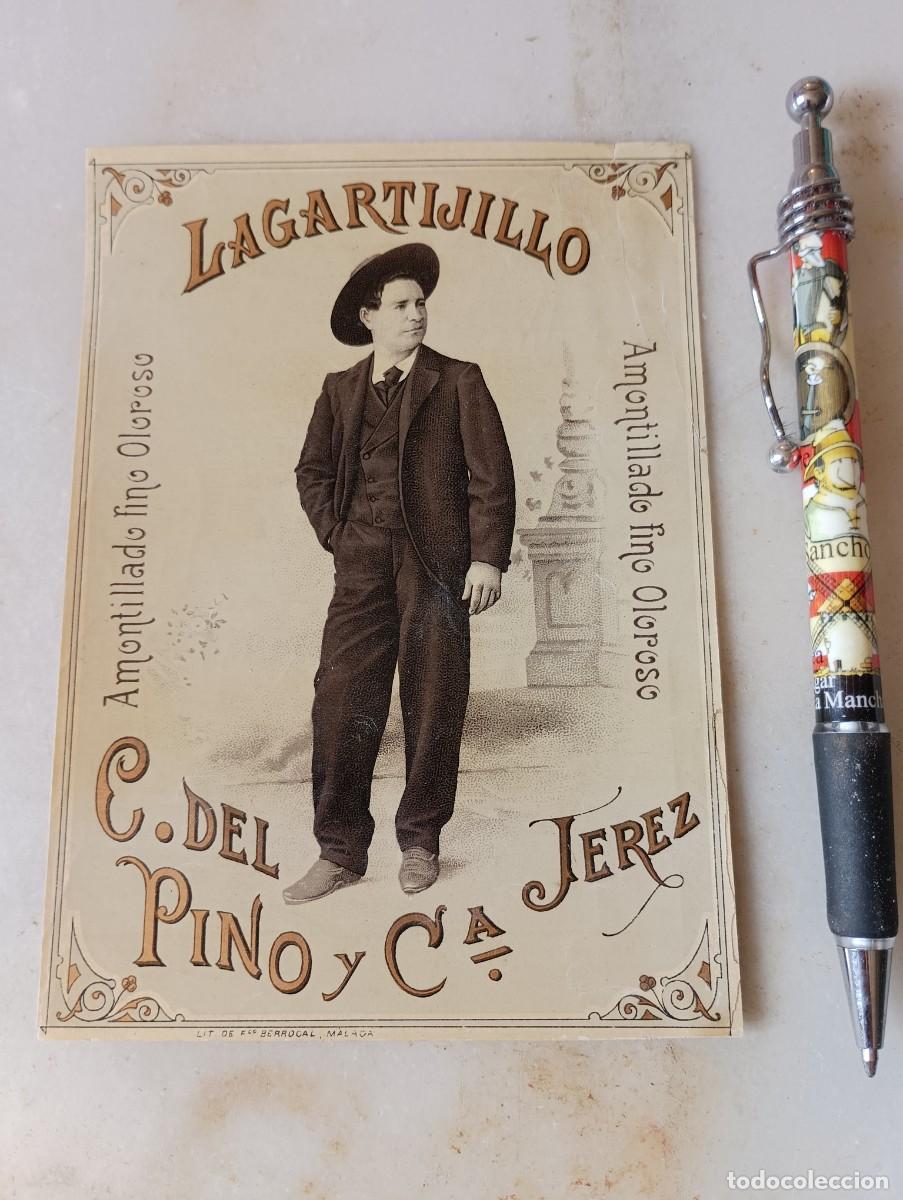 LAGARTIJILLO
Amontillado fino Oloroso
Amontillado fino Oloroso
C. DEL
PINO y Cª.
JEREZ
LIT. DE Fco BERROCAL, MÁLAGA
ancho
gar
a Manch
todocoleccion